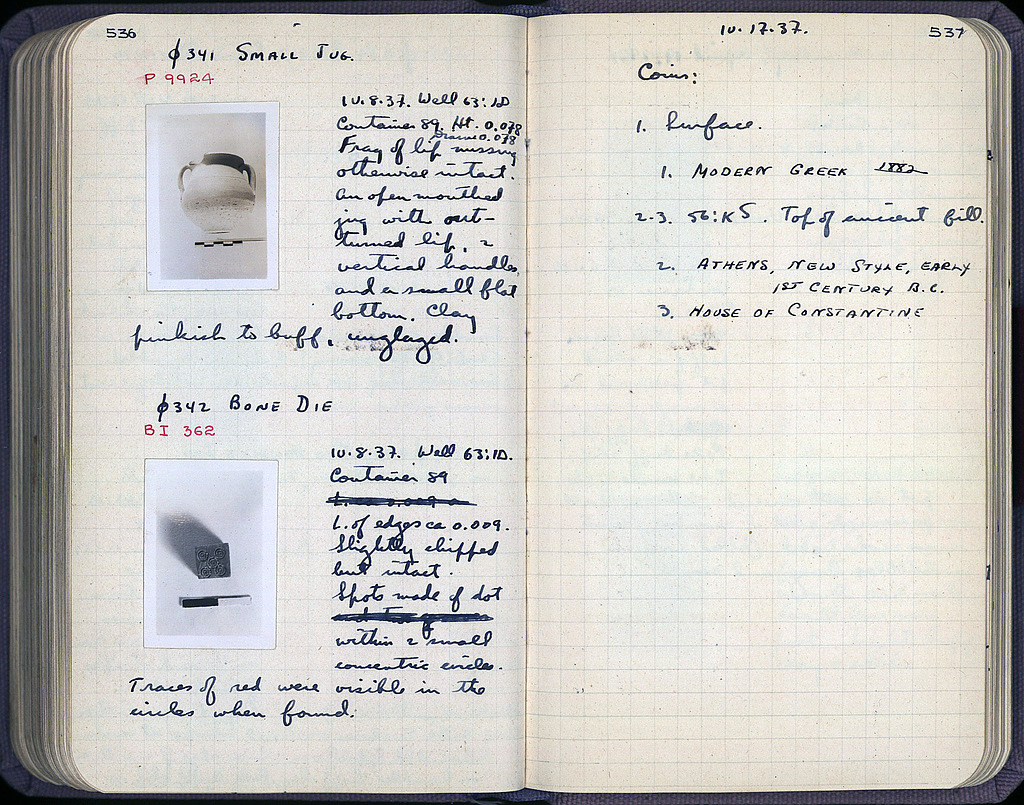 536
ɸ341 SMALL JUG.
P 9924
10.8.37. Well 63:1D
Container 89. Ht. 0.078
Diam 0.078
Frag of lip missing
otherwise intact.
An open mouthed
jug with out-
turned lip, 2
vertical handles,
and a small flat
bottom. Clay
pinkish to buff, unglazed.
ɸ342 BONE DIE
BI 362
10.8.37. Well 63:1D.
Container 89
L. of edges ca 0.009.
Slightly chipped
but intact.
Spots made of dot
within 2 small
concentric circles.
Traces of red were visible in the
circles when found.
10.17.37.
537
Coins:
1. Surface.
1. MODERN GREEK 1882
2-3. 56:KS. Top of ancient fill.
2. ATHENS, NEW STYLE, EARLY
1ST CENTURY B.C.
3. HOUSE OF CONSTANTINE